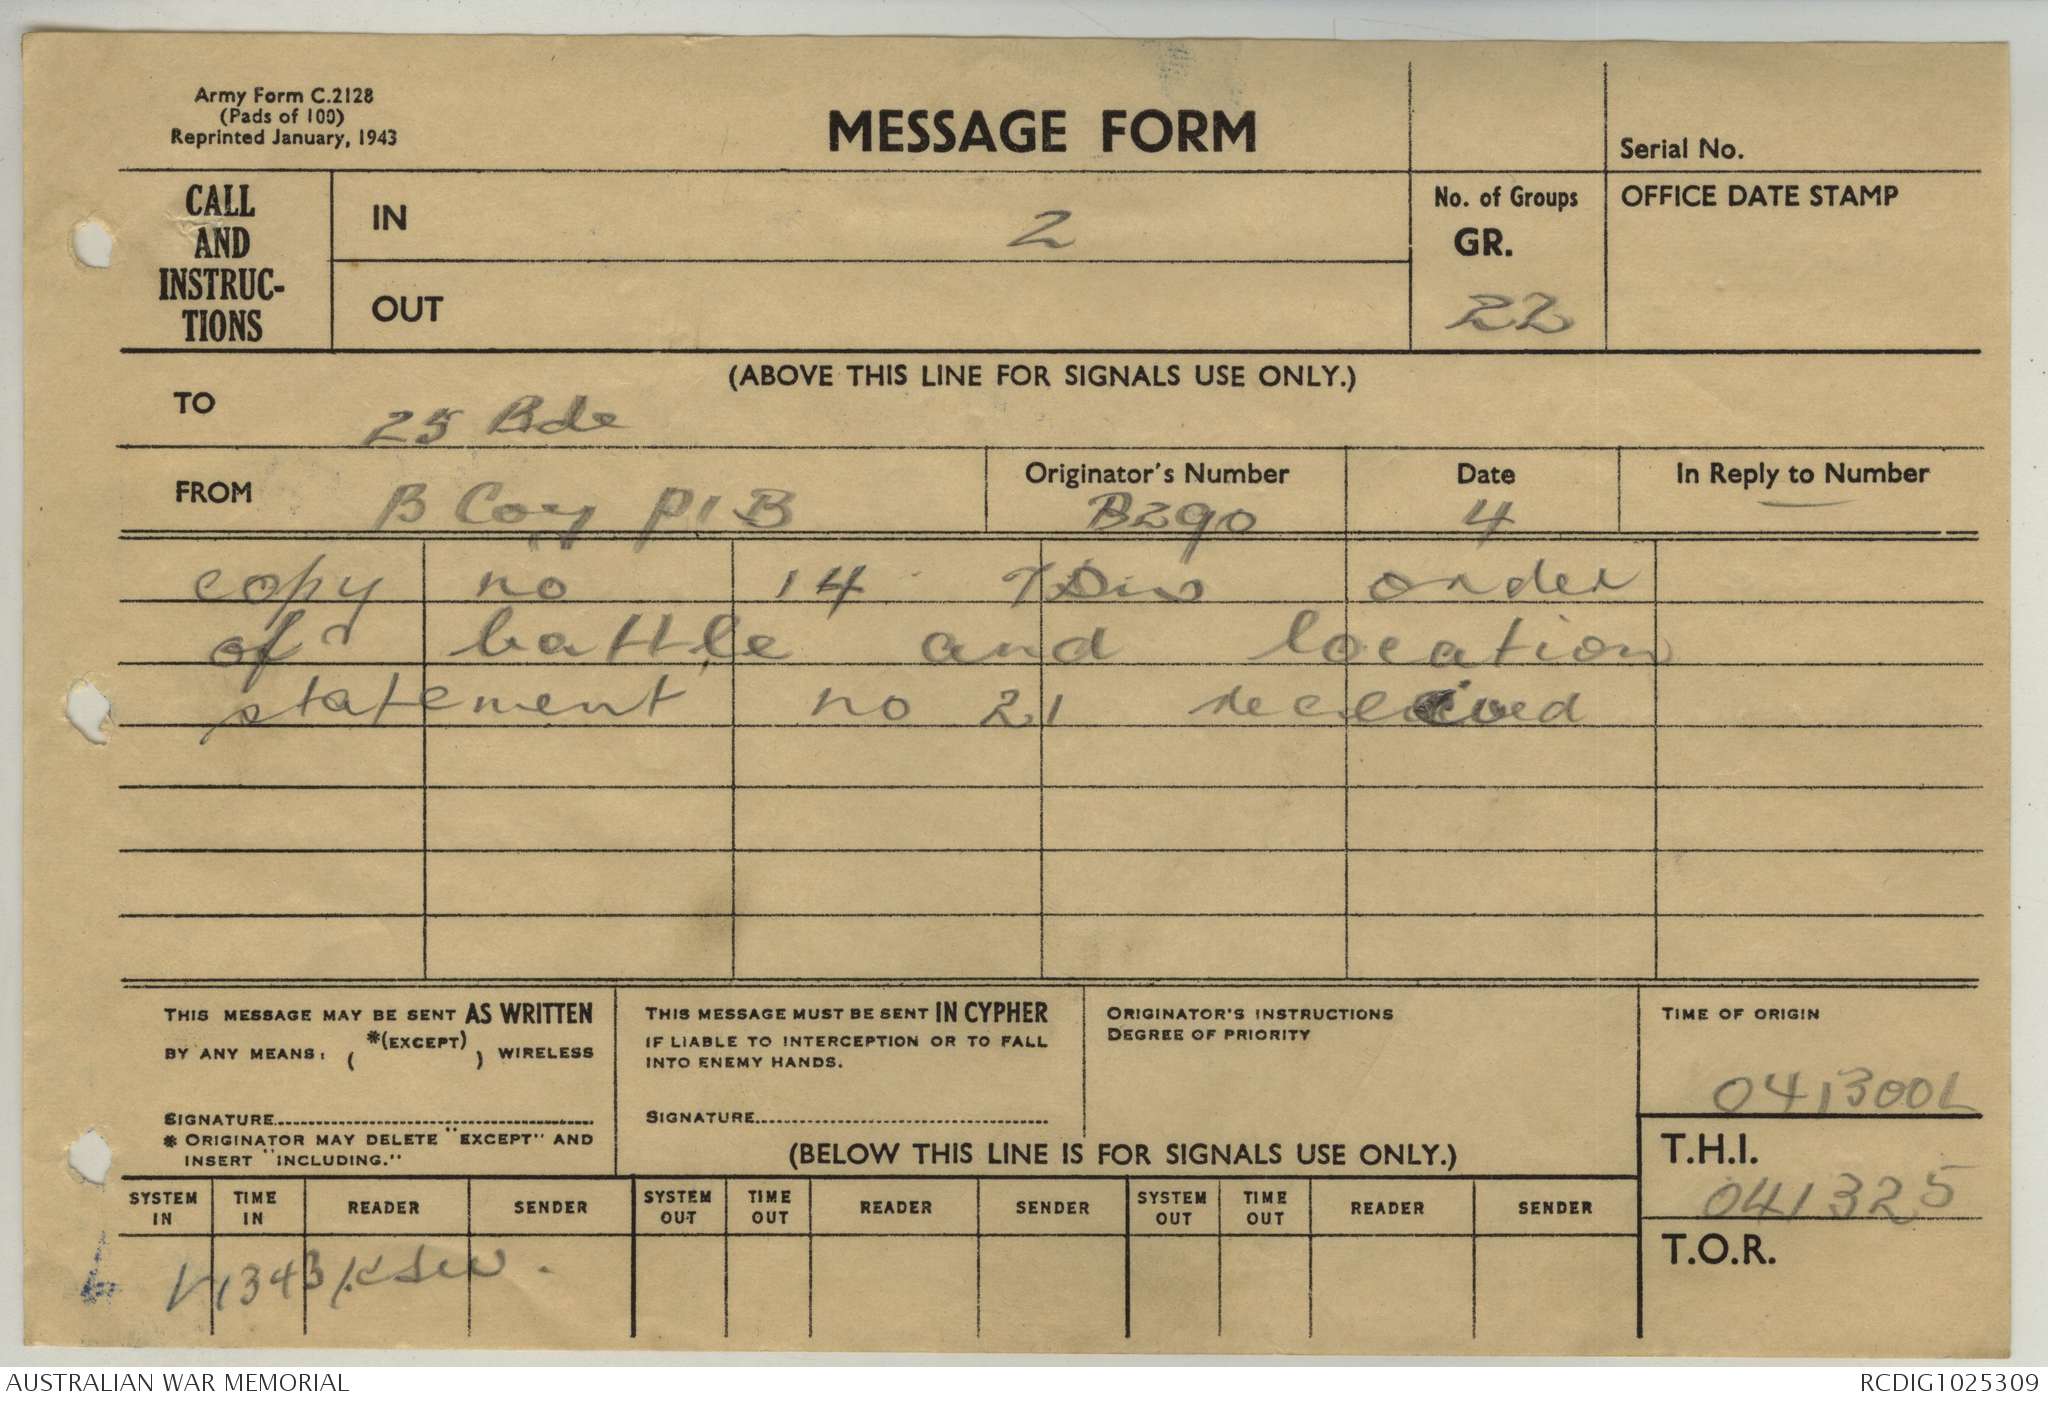 Army Form C.2128
(Pads of 100)
Reprinted January, 1943
MESSAGE FORM
Serial No.
CALL AND INSTRUC-TIONS
IN
2
OUT
No. of Groups
GR.
22
OFFICE DATE STAMP
(ABOVE THIS LINE FOR SIGNALS USE ONLY.)
TO
25 Bde
FROM
B Coy PIB
Originator's Number
B290
Date
4
In Reply to Number
—
copy no 14 7 Div order
of battle and location
statement no 21 received
THIS MESSAGE MAY BE SENT AS WRITTEN
BY ANY MEANS: ( *(EXCEPT) ) WIRELESS
SIGNATURE
* ORIGINATOR MAY DELETE "EXCEPT" AND
INSERT "INCLUDING."
THIS MESSAGE MUST BE SENT IN CYPHER
IF LIABLE TO INTERCEPTION OR TO FALL
INTO ENEMY HANDS.
SIGNATURE
ORIGINATOR'S INSTRUCTIONS
DEGREE OF PRIORITY
(BELOW THIS LINE IS FOR SIGNALS USE ONLY.)
TIME OF ORIGIN
041300L
T.H.I.
041325
T.O.R.
SYSTEM IN TIME IN READER SENDER SYSTEM OUT TIME OUT READER SENDER SYSTEM OUT TIME OUT READER SENDER
V 1343
AUSTRALIAN WAR MEMORIAL
RCDIG1025309